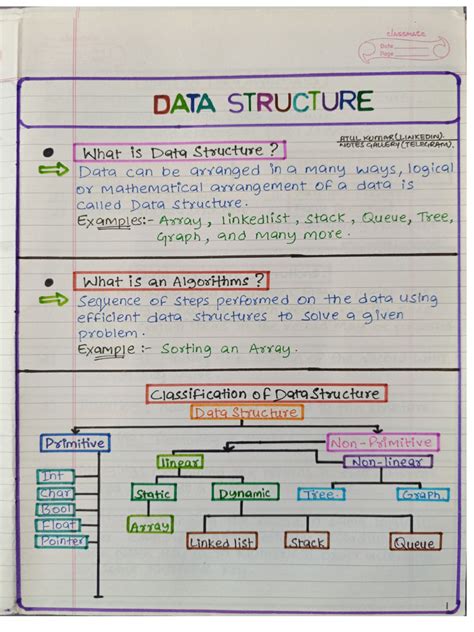 classmate
Date
Page
DATA STRUCTURE
ATUL KUMAR (LINKEDIN).
NOTES GALLERY (TELEGRAM).
What is Data Structure ?
Data can be arranged in a many ways, logical
or mathematical arrangement of a data is
called Data structure.
Examples:- Array, linkedlist, stack, Queue, Tree,
Graph, and many more.
What is an Algorithms ?
Sequence of steps performed on the data using
efficient data structures to solve a given
problem.
Example :- Sorting an Array.
Classification of Data Structure
Data Structure
Primitive
Non-Primitive
linear
Non-linear
Int
Static
Dynamic
Tree.
Graph.
Char
Bool
Float
Array
Pointer
Linked list
Stack
Queue
1